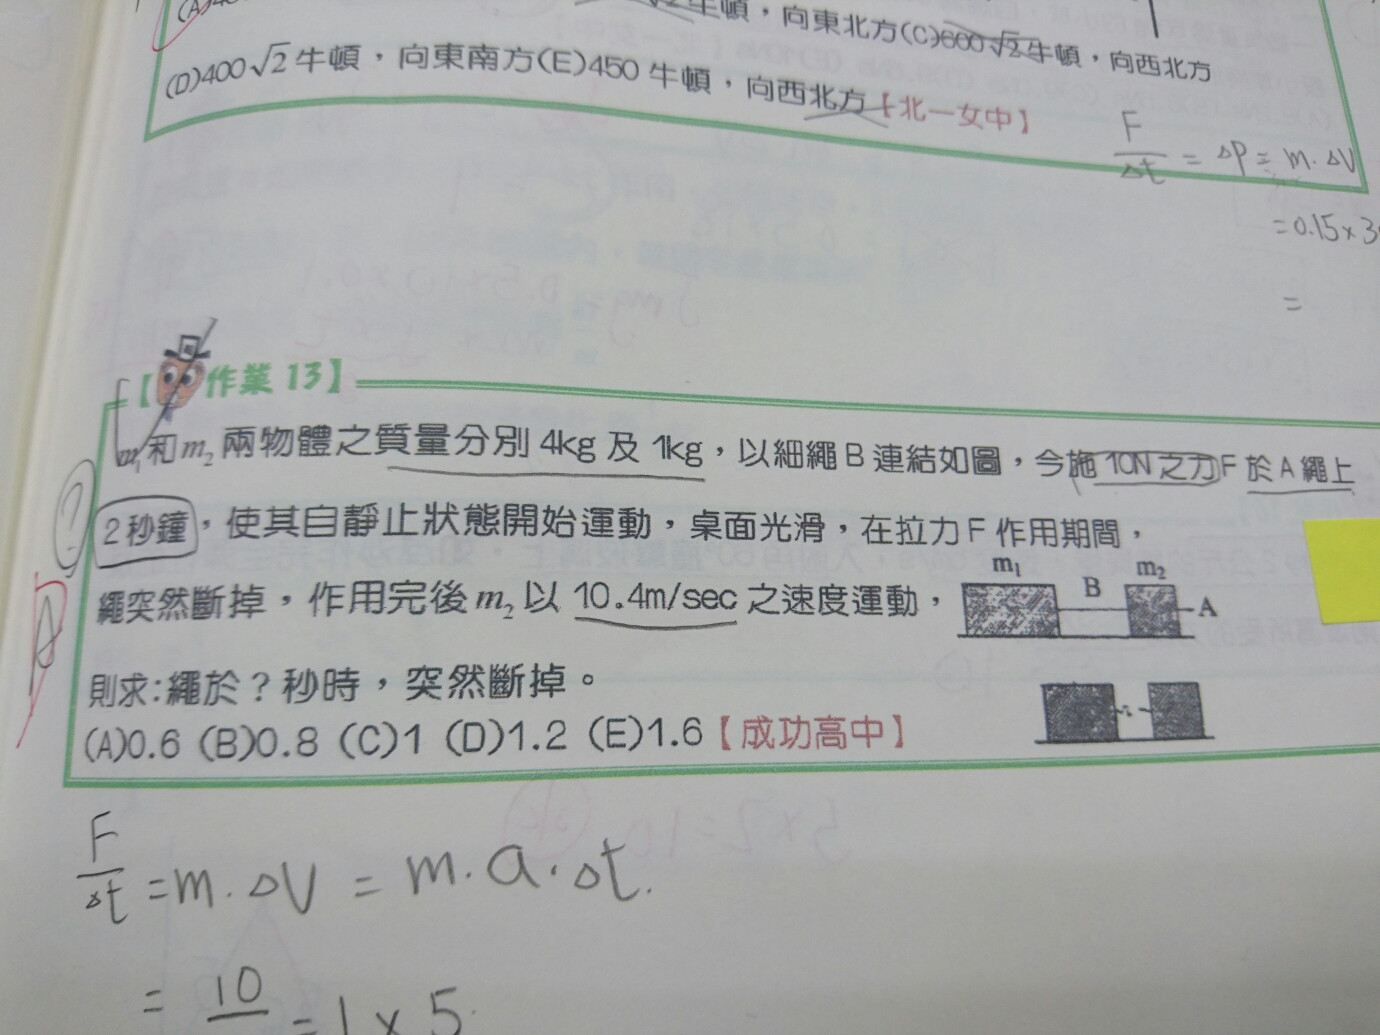 √2牛頓，向東北方(C)600√2牛頓，向西北方
(D)400√2牛頓，向東南方(E)450 牛頓，向西北方【北一女中】
F/Δt = ΔP = m·ΔV
=0.15×3
=
【作業 13】
m₁和m₂兩物體之質量分別 4kg 及 1kg，以細繩 B 連結如圖，今施 10N 之力 F 於 A 繩上
2 秒鐘，使其自靜止狀態開始運動，桌面光滑，在拉力 F 作用期間，
繩突然斷掉，作用完後 m₂ 以 10.4m/sec 之速度運動，
則求:繩於？秒時，突然斷掉。
(A)0.6 (B)0.8 (C)1 (D)1.2 (E)1.6【成功高中】
m₁ B m₂ A
?
A
F/Δt = m·ΔV = m.a.Δt.
= 10
=1×5